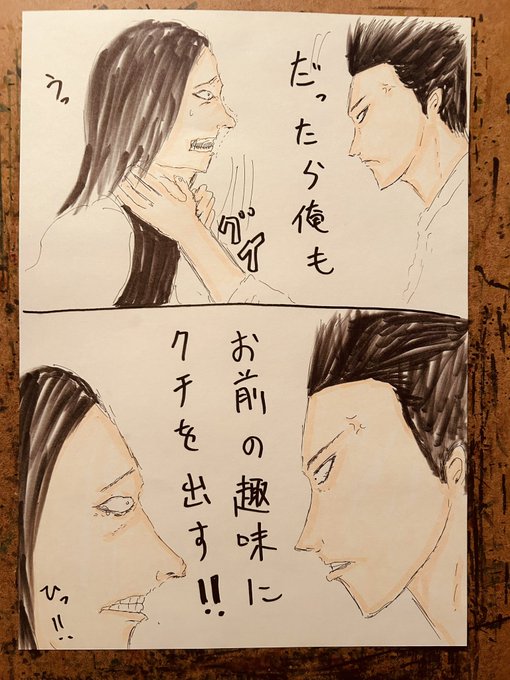 だったら俺も
グイ
うっ
お前の趣味に
クチを出す!!
ひっ!!